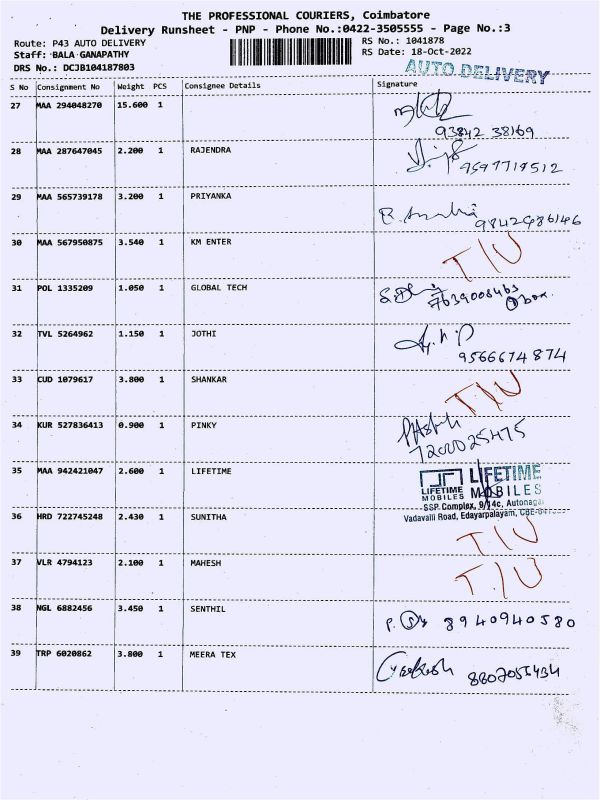 THE PROFESSIONAL COURIERS, Coimbatore
Delivery Runsheet - PNP - Phone No.:0422-3505555 - Page No.:3
Route: P43 AUTO DELIVERY RS No.: 1041878
Staff: BALA GANAPATHY RS Date: 18-Oct-2022
DRS No.: DCJB104187803
AUTO DELIVERY
S No Consignment No Weight PCS Consignee Details Signature
27 MAA 294048270 15.600 1
93842 38169
28 MAA 287647045 2.200 1 RAJENDRA
9597719512
29 MAA 565739178 3.200 1 PRIYANKA
9842986146
30 MAA 567950875 3.540 1 KM ENTER T/U
31 POL 1335209 1.050 1 GLOBAL TECH
7639008463
box
32 TVL 5264962 1.150 1 JOTHI
9566674874
33 CUD 1079617 3.800 1 SHANKAR T/U
34 KUR 527836413 0.900 1 PINKY
7200025475
35 MAA 942421047 2.600 1 LIFETIME
LIFETIME MOBILES
LIFETIME MOBILES
SSP Complex, 9/14c, Autonagar
Vadavalli Road, Edayarpalayam, CBE-
36 HRD 722745248 2.430 1 SUNITHA T/U
37 VLR 4794123 2.100 1 MAHESH T/U
38 NGL 6882456 3.450 1 SENTHIL
8940940580
39 TRP 6020862 3.800 1 MEERA TEX
8807055434